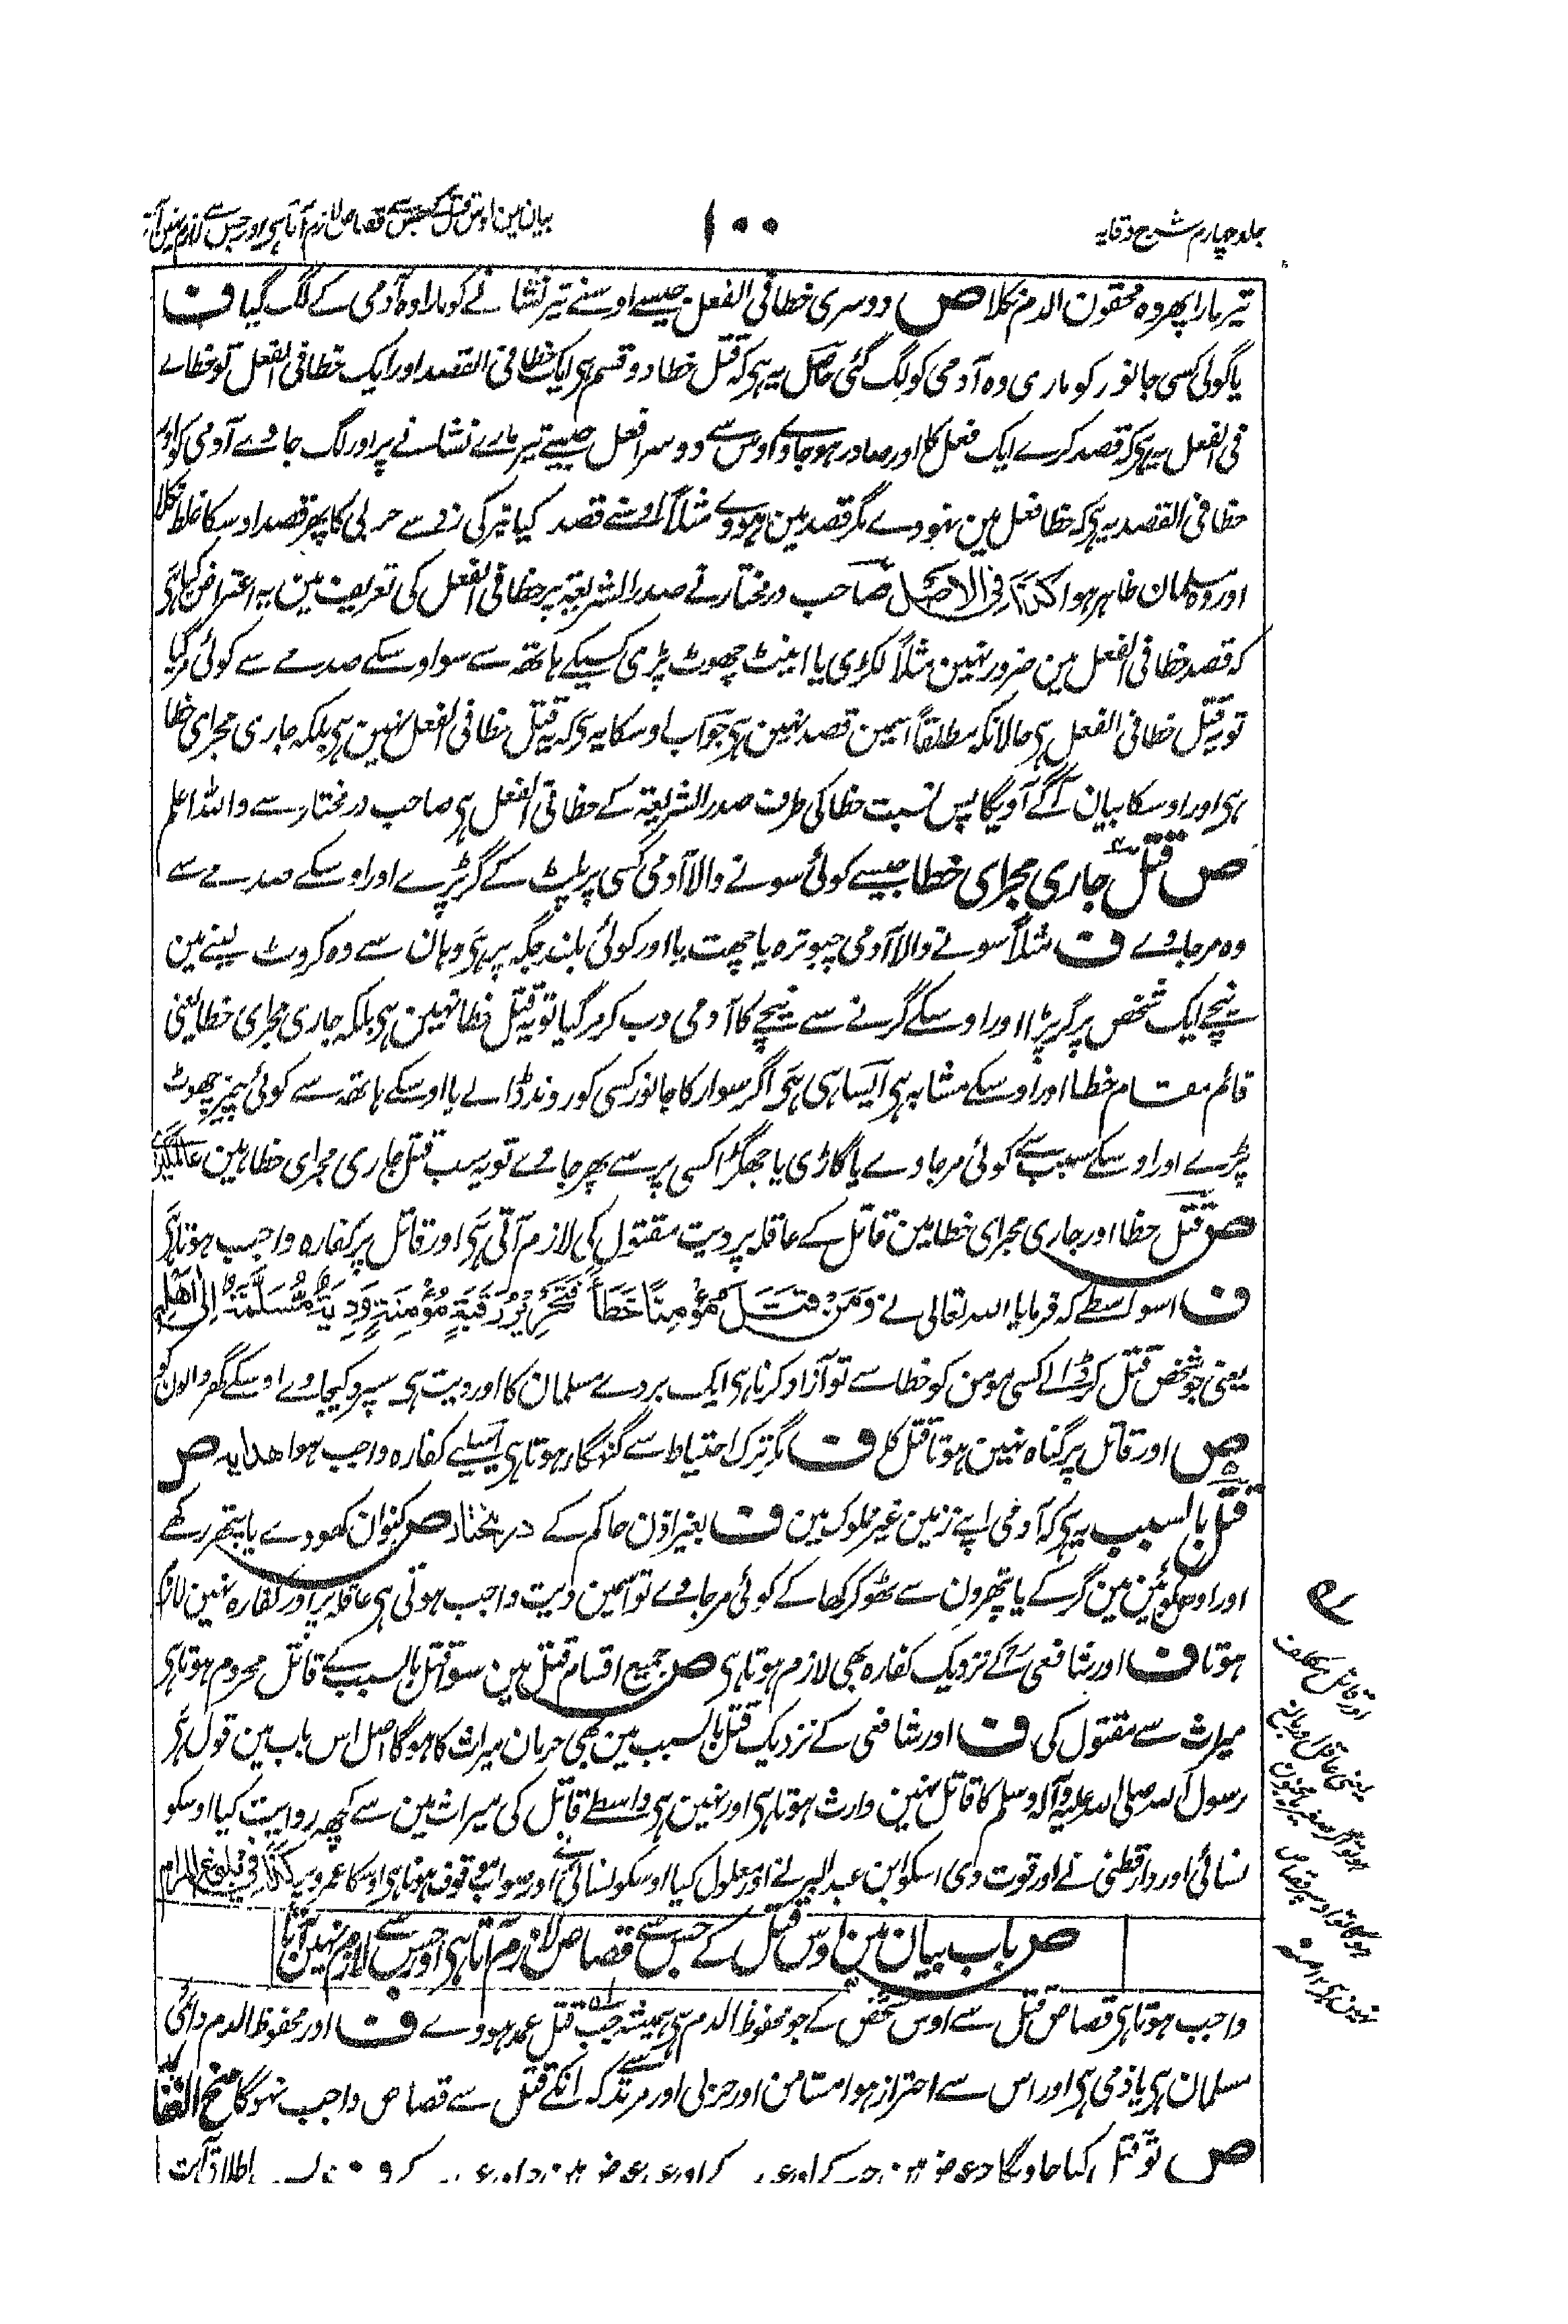 جلد چہارم شرح وقایہ
۱۰۰
بیان مین اوس قتل کے جس سے قصاص لازم آتا ہی اور جس سے لازم نہین آتا
تیر مارا پھر وہ محقون الدم نکلا ص دوسری خطا فی الفعل جیسے اوسنے تیر نشانے کو مارا وہ آدمی کے لگ گیا ف
یا گولی کسی جانور کو ماری وہ آدمی کو لگ گئی حاصل یہ ہی کہ قتل خطا دو قسم ہی ایک خطا فی القصد اور ایک خطا فی الفعل تو خطاے
فی الفعل یہ ہی کہ قصد کرے ایک فعل کا اور صادر ہوجاوے اوس سے دوسرا فعل جیسے تیر مارے نشانے پر اور لگ جاوے آدمی کو اور
خطا فی القصد یہ ہی کہ خطا فعل مین نہووے مگر قصد مین ہووے مثلاً اوسنے قصد کیا تیر کی زد سے حربی کا پھر قصد اوسکا غلط نکلا
اور وہ مسلمان ظاہر ہوا کذا فی الاصل صاحب درمختار نے صدر الشریعۃ پر خطا فی الفعل کی تعریف مین یہ اعتراض کیا ہی
کہ قصد خطا فی الفعل مین ضرور نہین مثلاً لکڑی یا اینٹ چھوٹ پڑی کسیکے ہاتھ سے سو اوسکے صدمے سے کوئی مر گیا
تو یہ قتل خطا فی الفعل ہی حالانکہ مطلقاً اسمین قصد نہین ہی جواب اوسکا یہ ہی کہ یہ قتل خطا فی الفعل نہین ہی بلکہ جاری مجرای خطا
ہی اور اوسکا بیان آگے آویگا پس نسبت خطا کی طرف صدر الشریعۃ کے خطا فی الفعل ہی صاحب درمختار سے واللہ اعلم
ص قتل جاری مجرای خطا جیسے کوئی سونے والا آدمی کسی پر پلٹ کے گر پڑے اور اوسکے صدمے سے
وہ مر جاوے ف مثلاً سونے والا آدمی چبوترہ یا چھت یا اور کوئی بلند جگہ پر ہی وہان سے وہ کروٹ لینے مین
نیچے ایک شخص پر گر پڑا اور اوسکے گرنے سے نیچے کا آدمی دب کر مر گیا تو یہ قتل خطا نہین ہی بلکہ جاری مجرای خطا یعنی
قائم مقام خطا اور اوسکے مشابہ ہی ایسا ہی ہی اگر سوار کا جانور کسی کو روند ڈالے یا اوسکے ہاتھ سے کوئی چیز چھوٹ
پڑے اور اوسکے سبب سے کوئی مر جاوے یا گاڑی یا چھگڑا کسی پر سے پھر جاوے تو یہ سب قتل جاری مجرای خطا ہین عالمگیری
ص قتل خطا اور جاری مجرای خطا مین قاتل کے عاقلہ پر دیت مقتول کی لازم آتی ہی اور قاتل پر کفارہ واجب ہوتا ہی
ف اسواسطے کہ فرمایا اللہ تعالی نے وَمَنْ قَتَلَ مُؤْمِنًا خَطَأً فَتَحْرِيْرُ رَقَبَةٍ مُؤْمِنَةٍ وَدِيَةٌ مُسَلَّمَةٌ اِلٰى اَهْلِهٖ
یعنی جو شخص قتل کر ڈالے کسی مومن کو خطا سے تو آزاد کرنا ہی ایک بردے مسلمان کا اور دیت ہی سپرد کیجاوے اوسکے گھر والون کو
ص اور قاتل پر گناہ نہین ہوتا قتل کا ف مگر ترک احتیاط سے گنہگار ہوتا ہی اسیلیے کفارہ واجب ہوا ھدایہ ص
قتل بالسبب یہ ہی کہ آدمی اپنے زمین غیر مملوک مین ف بغیر اذن حاکم کے درمختار ص کنوان کھودے یا پتھر رکھے
اور اوس کوئین مین گر کے یا پتھرون سے ٹھوکر کھا کے کوئی مر جاوے تو اسمین دیت واجب ہوتی ہی عاقلہ پر اور کفارہ نہین لازم
ہوتا ف اور شافعی کے نزدیک کفارہ بھی لازم ہوتا ہی ص جمیع اقسام قتل مین سوا قتل بالسبب کے قاتل محروم ہوتا ہی
میراث سے مقتول کی ف اور شافعی کے نزدیک قتل بالسبب مین بھی حرمان میراث کا ہوگا اصل اس باب مین قول ہی
رسول اللہ صلی اللہ علیہ وآلہ وسلم کا قاتل نہین وارث ہوتا ہی اور نہین ہی واسطے قاتل کی میراث مین سے کچھ روایت کیا اوسکو
نسائی اور دارقطنی نے اور قوت دی اسکو ابن عبد البر نے اور معلول کیا اوسکو نسائی نے اور صواب موقوف ہونا ہی اوسکا عمرو پر کذا فی بلوغ المرام
ص باب بیان مین اوس قتل کے جس سے قصاص لازم آتا ہی اور جس سے لازم نہین آتا
واجب ہوتا ہی قصاص قتل سے اوس شخص کے جو محفوظ الدم ہی ہمیشہ جب قتل عمد ہووے ف اور محفوظ الدم دائمی
مسلمان ہی یا ذمی ہی اور اس سے احتراز ہوا مستامن اور حربی اور مرتد سے کہ انکے قتل سے قصاص واجب نہوگا منح الغفار
ص تو قتل کیا جاویگا
اور قاتل مکلف
یعنی عاقل و بالغ
ہو تو اگر صغیر یا مجنون
ہوگا تو اوسپر قصاص
نہین ہی ۱۲ منہ